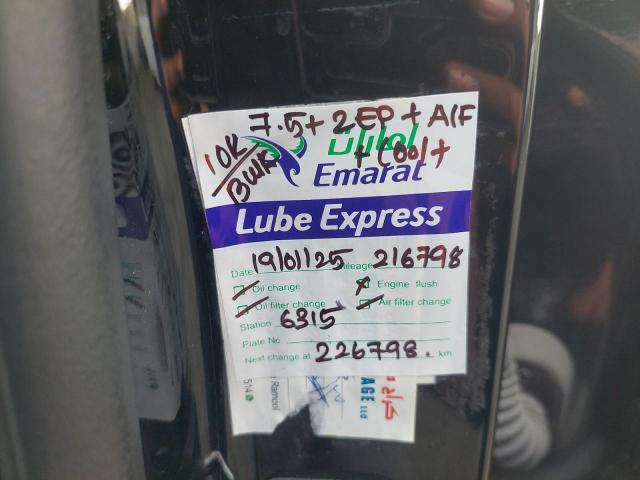 7.5+ 2EP + A/F
10K/BULK
+ Cool +
امارات
Emarat
Lube Express
Date 19/01/25 Mileage 216798
Oil change Engine flush
Oil filter change Air filter change
Station 6315
Plate No
Next change at 226798. km
Ramool
514
AGE LLC
كراج